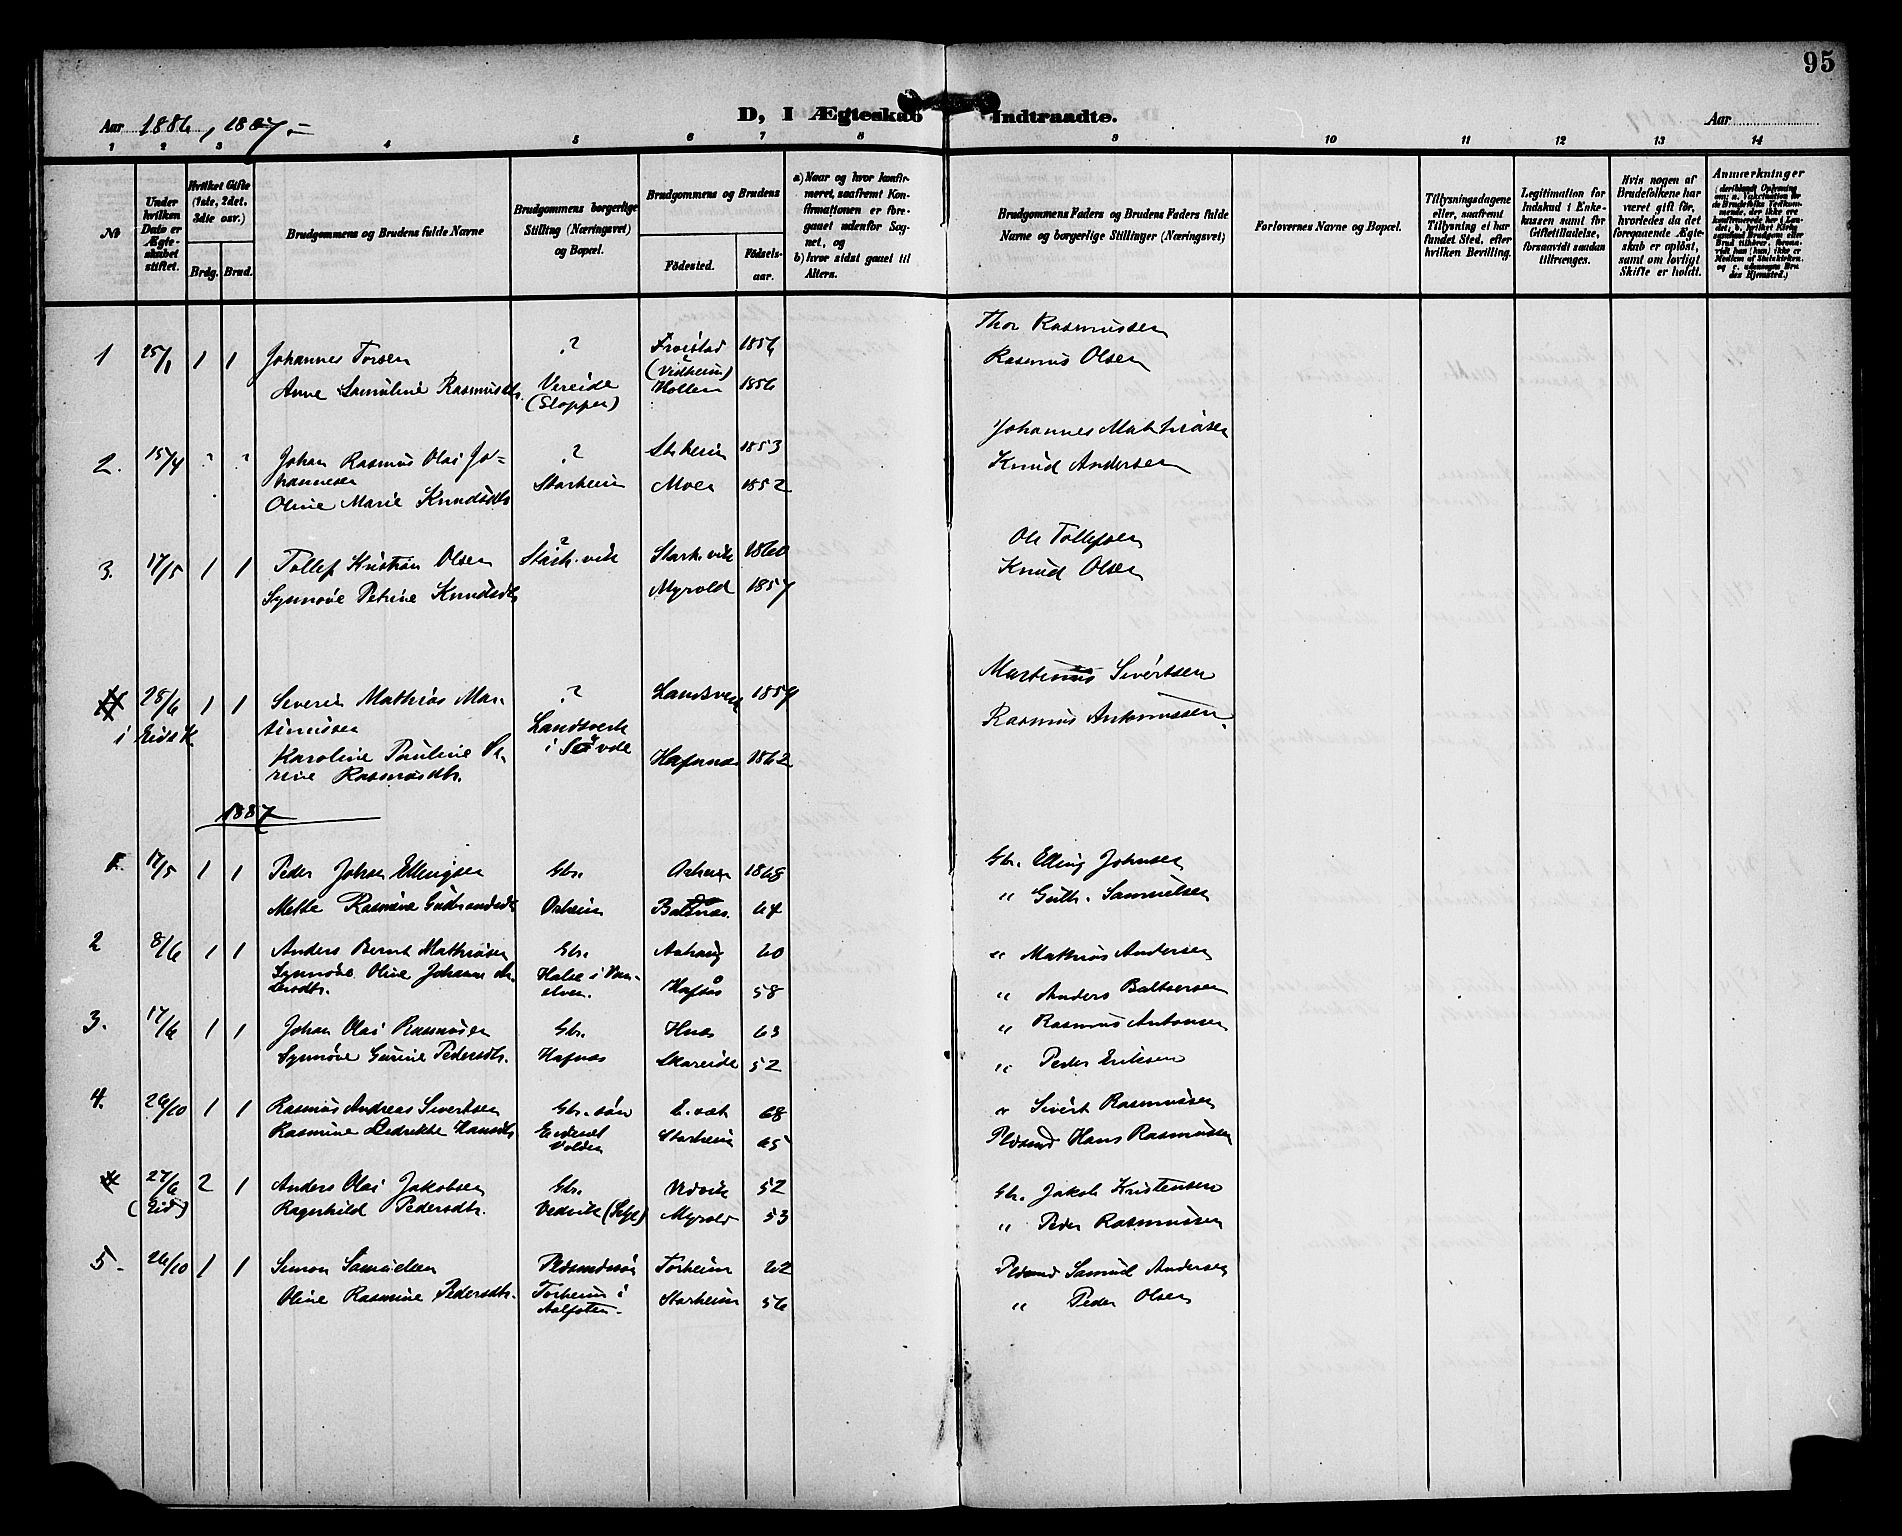 95
Aar 1886, 1887.
D, I Ægteskab Indtraadte.
Aar
1 2 3 4 5 6 7 8 9 10 11 12 13 14
No
Under hvilken Dato er Ægteskabet stiftet.
Hvilket Gifte (1ste, 2det, 3die osv.)
Brdg. Brud.
Brudgommens og Brudens fulde Navne
Brudgommens borgerlige Stilling (Næringsvei) og Bopæl.
Brudgommens og Brudens
Födested.
Födselsaar.
a) Naar og hvor konfirmeret, saafremt Konfirmationen er foregaaet udenfor Sognet, og
b) hvor sidst gaaet til Alters.
Brudgommens Faders og Brudens Faders fulde Navne og borgerlige Stillinger (Næringsvei)
Forlovernes Navne og Bopæl.
Tillysningsdagene eller, saafremt Tillysning ei har fundet Sted, efter hvilken Bevilling.
Legitimation for Indskud i Enkekassen samt for Giftetilladelse, forsaavidt saadan tiltrænges.
Hvis nogen af Brudefolkene har været gift för, hvorledes da det foregaaende Ægteskab er oplöst, samt om lovligt Skifte er holdt.
Anmærkninger
1 25/1 1 1 Johannes Torsen ? Froistad 1856 Thor Rasmussen
(Vidheim)
Anne Samuline Rasmusdtr. Vereide Hollen 1856 Rasmus Olsen
(Gloppen)
2. 15/4 ? ? Johan Rasmus Olai Johannesen ? Starheim 1853 Johannes Mathiasen
Oline Marie Knudsdtr Starheim Moen 1852 Knud Andersen
3. 17/5 1 1 Tollef Kristian Olsen ? Starh.vik Starh.vik 1860 Ole Tollefsen
Synnöve Petrine Knudsdtr Myrold 1857 Knud Olsen
28/6 1 1 Severin Mathias Martinusen ? Landsverk 1859 Martinus Sivertsen
i Eids K. Landsverk i Sövde
Karoline Pauline Perine Rasmusdtr. Hafnnes 1862 Rasmus Antonussen.
1887
1. 17/5 1 1 Peder Johan Ellingsen Gbr. Aahaug 1868 Gbr. Elling Johnsen
Mette Rasmine Gudbrandsdtr Osheim 64 " Gutb. Samuelsen
2 8/6 1 1 Anders Bernt Mathiasen Gbr. Aahaug 60 " Mathias Andersen
Synnöve Oline Johanne Andersdtr. Halse i Vanelven. Hafsås 58 " Anders Baltsersen
3. 17/6 1 1 Johan Olai Rasmusen Gbr. Hnes 63 " Rasmus Antonsen
Synnöve Gurine Pedersdtr. Hafnes Skareide 52 " Peder Eriksen
4. 26/10 1 1 Rasmus Andreas Sivertsen Gbr. sön E.set 68 " Sivert Rasmussen
Rasmine Ledrikke Hansdtr Eideset Volden Starheim 65 Pldsmd Hans Rasmussen
27/6 2 1 Anders Olai Jakobsen Gbr. Vedvik 52 Gbr. Jakob Kristensen
(Eid) Ragnhild Pedersdtr. Vedvik (Selje) Myrold 53 " Peder Rasmussen
5. 26/10 1 1 Simon Samuelsen Pldsmdssön Torheim 62 Pldsmd Samuel Andersen
Oline Rasmine Pedersdtr. Torheim i Aalfoten. Starheim 56 " Peder Olsen